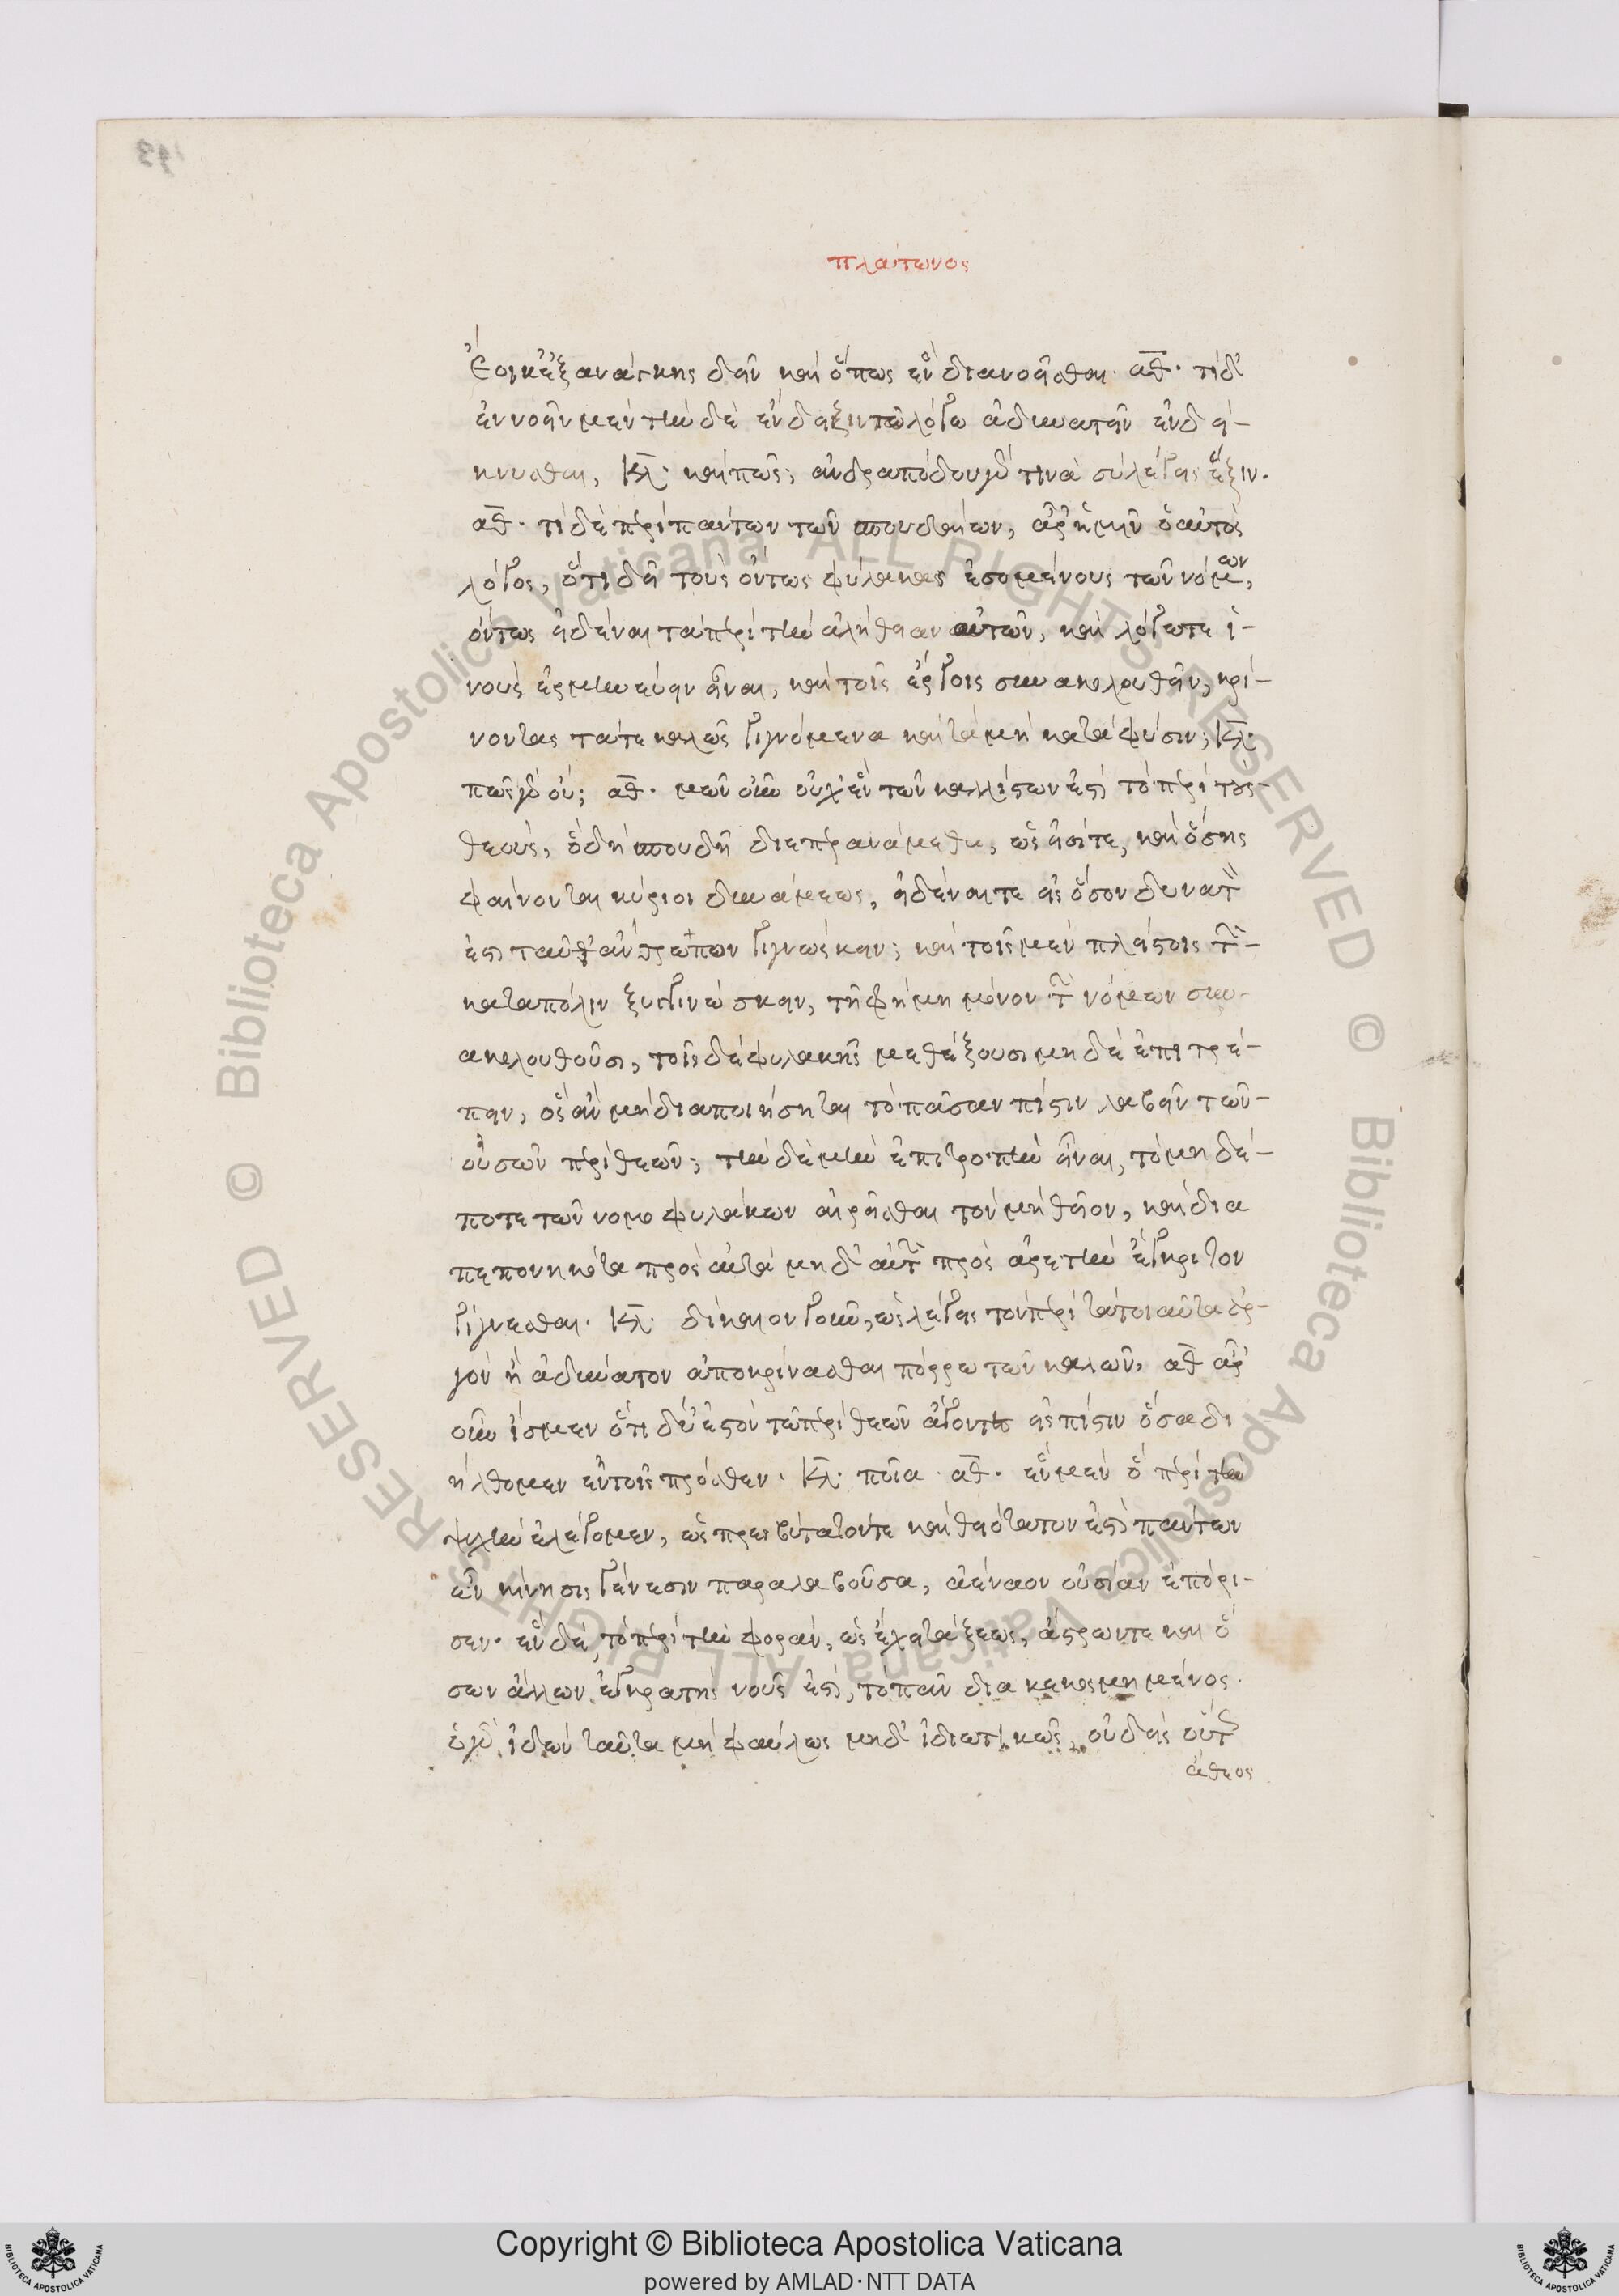 πλάτωνος
Ἔοικ' ἐξανάγκης δεῖν καὶ ὅπως ἓν διανοεῖσθαι. αθ. τί δ'
ἐννοεῖν μὲν τὴν δὲ ἔνδειξιν τῶ λόγω ἀδυνατεῖν ἐνδεί-
κνυσθαι, κλ. καὶ πῶς; ἀνδραπόδου γάρ τινα σὺ λέγεις ἕξιν.
αθ. τί δὲ περὶ πάντων τῶν σπουδαίων, ἆρ' ἡμῖν ὁ αὐτὸς
λόγος, ὅτι δεῖ τοὺς ὄντως φύλακας ἐσομένους τῶν νόμων,
ὄντως εἰδέναι τὰ περὶ τὴν ἀλήθειαν αὐτῶν, καὶ λόγω τε ἱ-
νοὺς ἑρμηνεύειν εἶναι, καὶ τοῖς ἔργοις συνακολουθεῖν, κρί-
νοντας τά τε καλῶς γιγνόμενα καὶ τὰ μὴ κατὰ φύσιν; κλ.
πῶς γὰρ οὔ; αθ. μῶν οὖν οὐχ ἓν τῶν καλλίστων ἐστὶ τὸ περὶ τοὺς
θεούς, ὃ δὴ σπουδῆ διεπερανάμεθα, ὡς εἰσί τε, καὶ ὅσης
φαίνονται κύριοι δυνάμεως, εἰδέναι τε εἰς ὅσον δυνατὸν
ἐστὶ ταῦτ' ἄνθρωπον γιγνώσκειν; καὶ τοῖς μὲν πλείστοις τῶν
κατὰ πόλιν ξυγγινώσκειν, τῆ φήμη μόνον τῶν νόμων συν-
ακολουθοῦσι, τοῖς δὲ φυλακῆς μεθέξουσι μηδὲ ἐπιτρέ-
πειν, ὃς ἂν μὴ διαποιήσηται τὸ πᾶσαν πίστιν λαβεῖν τῶν
οὐσῶν περὶ θεῶν; τὴν δὲ μὴν ἐπιτροπὴν εἶναι, τὸ μηδέ-
ποτε τῶν νομοφυλάκων αἱρεῖσθαι τὸν μὴ θεῖον, καὶ δια
πεπονηκότα πρὸς αὐτὰ μηδ' αὖ τῶν πρὸς ἀρετὴν ἔγκριτον
γίγνεσθαι. κλ. δίκαιον γοῦν, ὡς λέγεις τὸν περὶ τὰ τοιαῦτα ἀρ-
γὸν ἢ ἀδύνατον ἀποκρίνασθαι πόρρω τῶν καλῶν, αθ ἆρ'
οὖν ἴσμεν ὅτι δύ' ἐστὸν τὼ περὶ θεῶν ἄγοντε εἰς πίστιν ὅσα δι
ήλθομεν ἐν τοῖς πρόσθεν. κλ. ποῖα. αθ. ἓν μὲν ὃ περὶ τὴν
ψυχὴν ἐλέγομεν, ὡς πρεσβύτατόν τε καὶ θειότατον ἐστὶ πάντων
ὧν κίνησις γένεσιν παραλαβοῦσα, ἀέναον οὐσίαν ἐπόρι-
σεν. ἓν δὲ, τὸ περὶ τὴν φοράν, ὡς ἔχει τάξεως, ἄστρων τε καὶ ὅ
σων ἄλλων ἐγκρατὴς νοῦς ἐστὶ, τὸ πᾶν διακεκοσμημένος.
ὁ γὰρ ἰδὼν ταῦτα μὴ φαύλως μηδ' ἰδιωτικῶς, οὐδεὶς οὕτως
ἄθεος
Copyright © Biblioteca Apostolica Vaticana
powered by AMLAD·NTT DATA